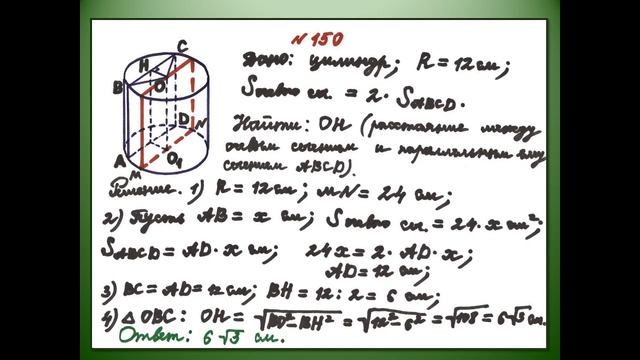 N 150
C
H
B
O
D
N
A
O₁
M
Дано: цилиндр; R = 12 см;
Sосевого сеч. = 2 · SABCD.
Найти: OH (расстояние между
осевым сечением и параллельным ему
сечением ABCD).
Решение. 1) R = 12 см; MN = 24 см;
2) Пусть AB = x см; Sосевого сеч. = 24 · x см²;
SABCD = AD · x см; 24x = 2 · AD · x;
AD = 12 см;
3) BC = AD = 12 см; BH = 12 : 2 = 6 см;
4) △ OBC: OH = √BO² - BH² = √12² - 6² = √108 = 6√3 см.
Ответ: 6√3 см.